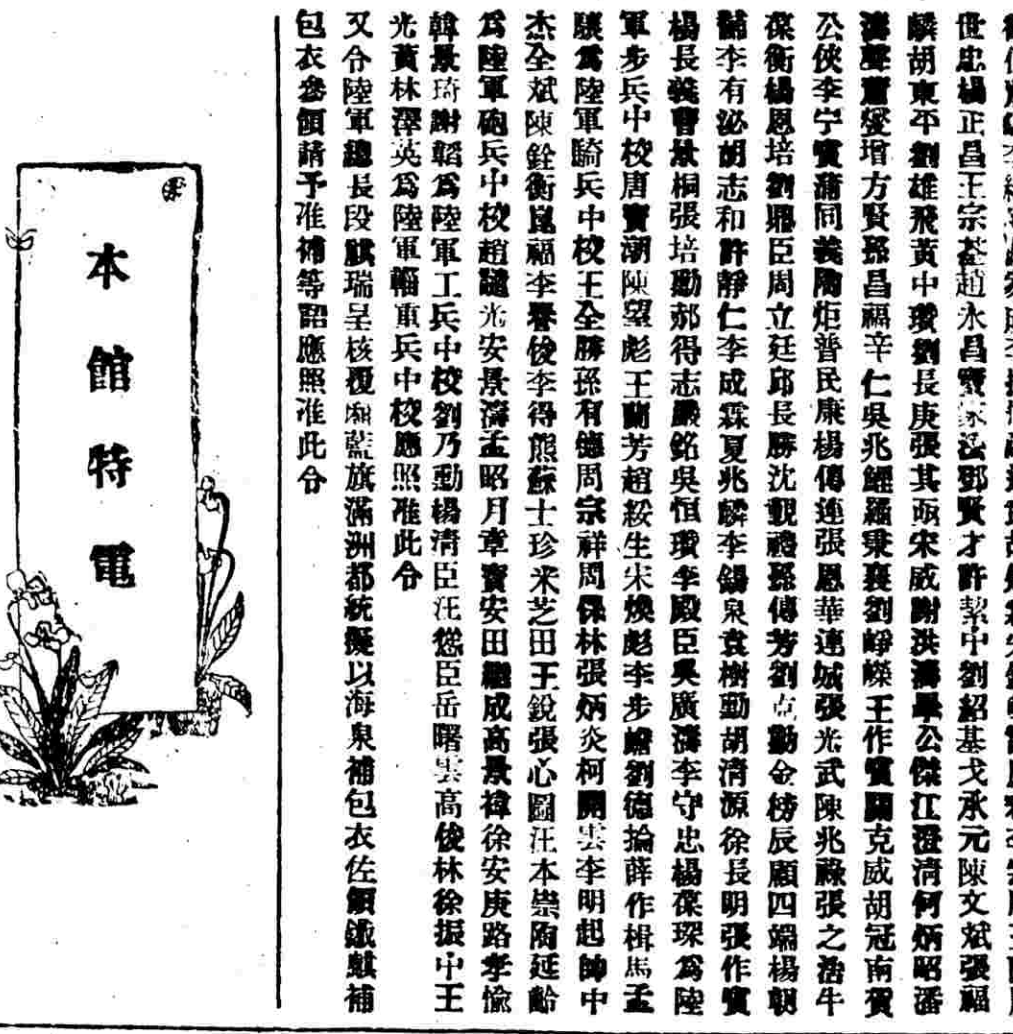 世忠楊正昌王宗荃趙永昌家法鄧賢才許絜中劉紹基戈承元陳文斌張福
麟胡東平劉雄飛黃中瓚劉長庚張其宋威謝洪濤畢公傑江澄清何炳昭潘
濤聲蕭燮增方賢孫昌福辛仁吳兆鯉羅秉襄劉崢嶸王作賓關克威胡冠南賀
公俠李宁賓蒲同義陶炬普民康楊傳連張恩華連城張光武陳兆祿張之浩牛
葆衡楊恩培劉鼎臣周立廷邱長勝沈觀禮孫傳芳劉克勤金榜辰顧四端楊朝
輔李有泌胡志和許靜仁李成霖夏兆麟李錫泉袁樹勳胡清源徐長明張作賓
楊長義曹林桐張培勳郝得志嚴銘吳恒瓚李殿臣吳廣濤李守忠楊葆琛爲陸
軍步兵中校唐寶潮陳望彪王蘭芳趙綏生宋煥彪李步蟾劉德掄薛作楫馬孟
驥爲陸軍騎兵中校王全勝孫有德周宗祥周保林張炳炎柯開雲李明起帥中
杰全斌陳銓衡崑福李譽俊李得熊蘇士珍米芝田王銳張心圖汪本崇陶延齡
爲陸軍砲兵中校趙光安景濤孟昭月章寶安田繼成高景禕徐安庚路孝愉
韓景琦謝韜爲陸軍工兵中校劉乃勳楊清臣汪慾臣岳曙雲高俊林徐振中王
光黃林澤英爲陸軍輜重兵中校應照准此令
又令陸軍總長段祺瑞呈核覆廂藍旗滿洲都統擬以海泉補包衣佐領鐵麒補
包衣叅領請予准補等語應照准此令
本館特電